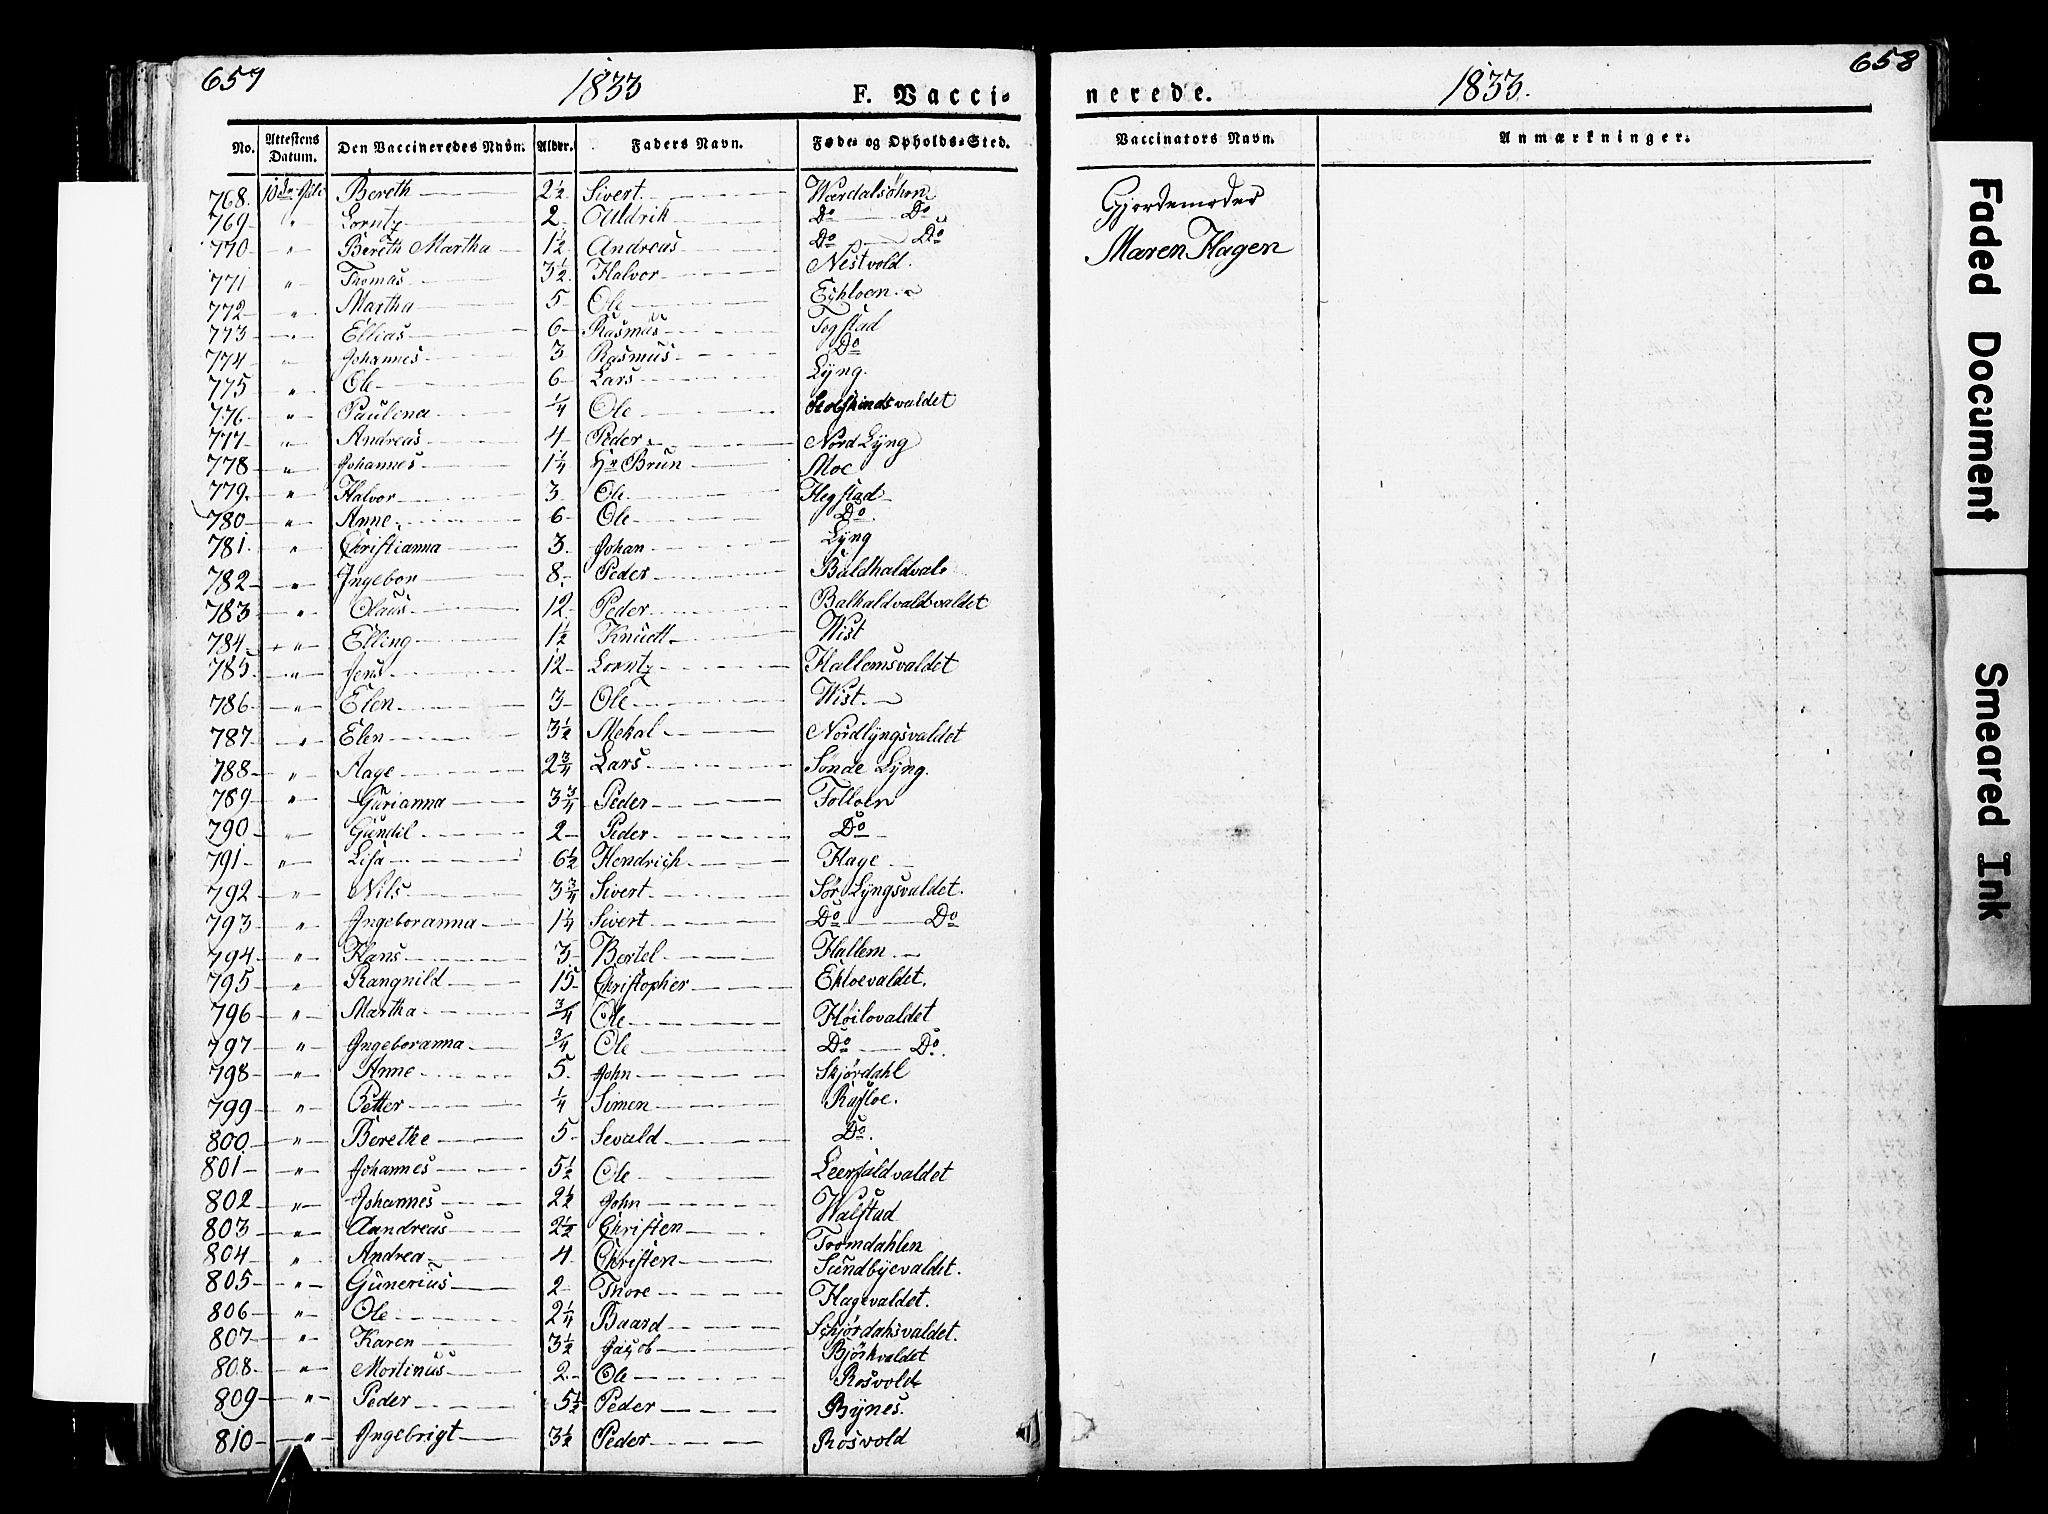 657
1833
F. Vacci-
No. Attestens Datum. Den Vaccineredes Navn. Alder. Faders Navn. Føde- og Opholds-Sted.
768. 10de Juli Bereth 2½ Sivert Wærdalsöhren
769 " Lorntz 2 Ulldrik Do Do
770 " Bereth Martha 1½ Andreas Do Do
771 " Tromas 3½ Halvor Nestvold.
772 " Martha 5 Ole Eÿkloen
773 " Ellias 6 Rasmus Togstad
774 " Johannes 3 Rasmus Do
775 " Ole 6 Lars Lÿng.
776 " Paulina ¼ Ole
777 " Andreas 4 Peder Nord Lÿng
778 " Johannes 1¼ Hr Brun Moe
779. " Halvor 3 Ole Hegstad
780 " Anne 6 Ole Do.
781. " Christianna 3. Johan Lÿng
782 " Ingebor 8. Peder Baldhaldvale
783 " Olaus 12 Peder Balhaldvaldvaldet
784 " Elling 1½ Knudt Wist
785 " Jens 12 Lorntz Hallemsvaldet
786 " Elen 3 Ole Wist.
787 " Elen 3½ Mekal Nordlÿngsvaldet
788 " Aage 2¾ Lars Sönde Lÿng.
789 " Gurianna 3¾ Peder Folloen
790 " Gundil 2 Peder Do
791 " Lisa 6½ Hendrich Hage
792 " Nils 3¾ Sivert Sör Lÿngsvaldet.
793 " Ingeboranna 1¼ Sivert Do Do
794 " Hans 3 Bertel Hallem
795 " Rangnild 15 Christopher Ekloevaldet.
796 " Martha ¾ Ole Höilovaldet
797 " Ingeboranna ¾ Ole Do Do.
798 " Anne 5 John Skjördahl
799 " Petter ¼ Simen Rosloe.
800 " Berethe 5 Sevald Do.
801 " Johannes 5½ Ole Leerfaldvaldet
802 " Johannes 2½ John Walstad
803 " Aandreas 2½ Christen Tromdahlen
804 " Andrea 4 Christen Sundbÿevaldet.
805 " Gunerius 2 Thore Hagevaldet.
806 " Ole 2¼ Baard Schjördahsvaldet.
807 " Karen 3½ Jacob Björkvaldet
808. " Mortinus 2. Ole Rosvold
809 " Peder 5½ Peder Bÿnes.
810 " Ingebrigt 3½ Peder Rosvold
658
nerede. 1833.
Vaccinators Navn. Anmærkninger.
Gjordemoder
Maren Hagen
Faded Document
Smeared Ink